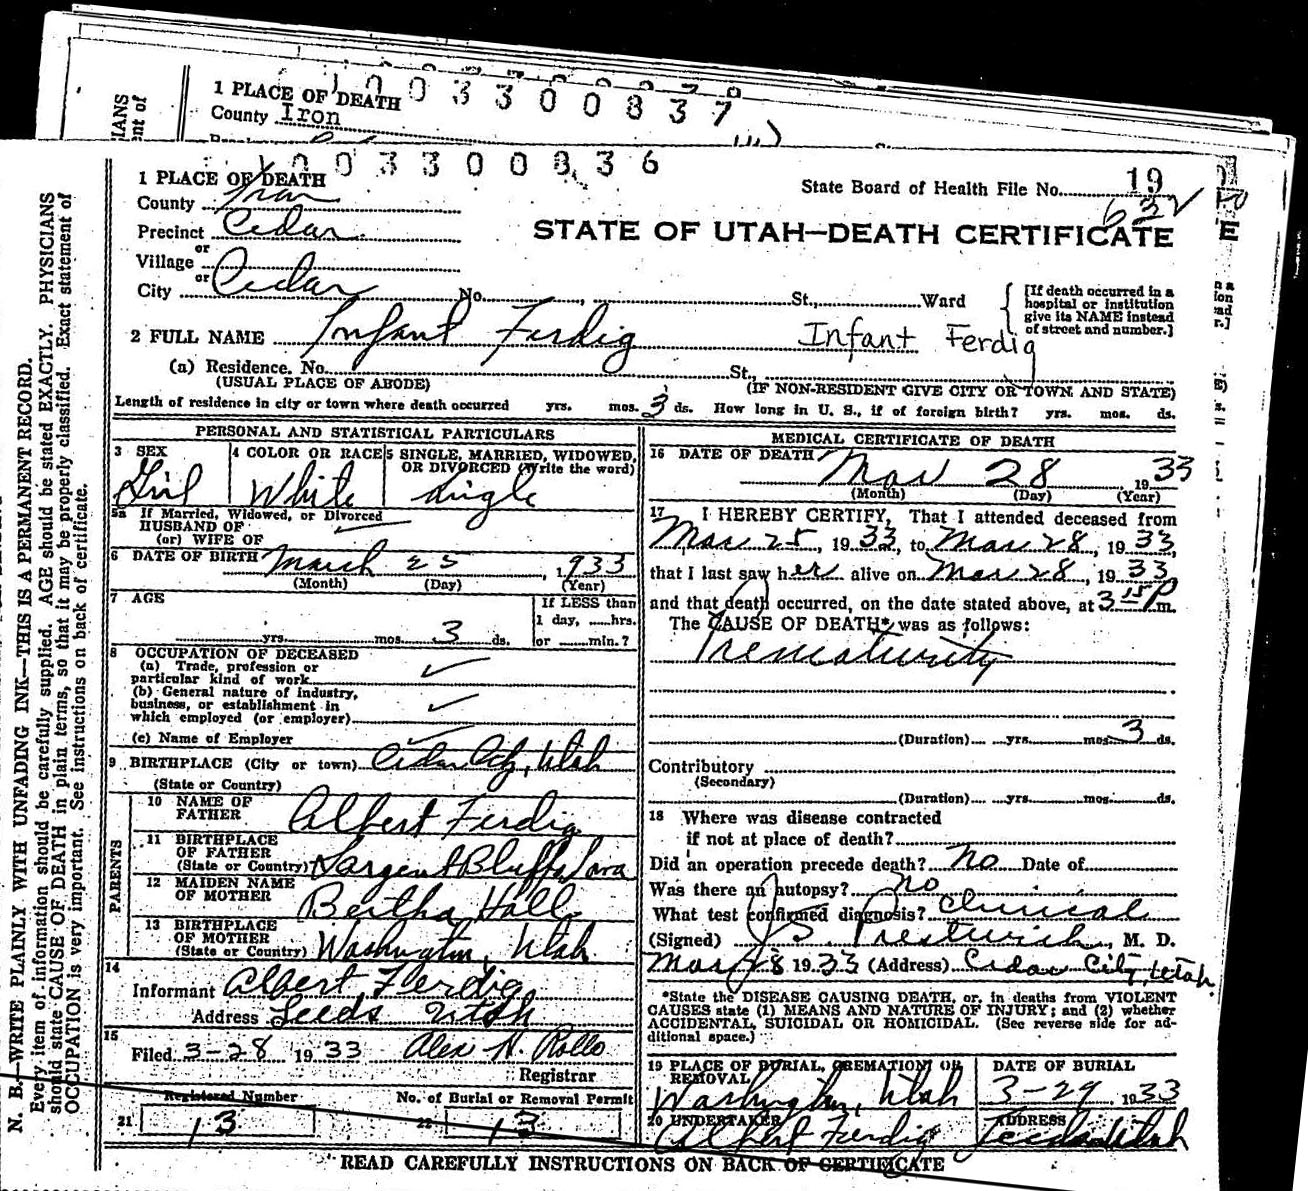 1 PLACE OF DEATH
1003300837
County Iron
1003300836
1 PLACE OF DEATH
State Board of Health File No. 19
632
County Iron
STATE OF UTAH—DEATH CERTIFICATE
Precinct Cedar
or
Village
or
City Cedar No. , St., Ward
[If death occurred in a
hospital or institution
give its NAME instead
of street and number.]
2 FULL NAME Infant Ferdig Infant Ferdig
(a) Residence. No. St.,
(USUAL PLACE OF ABODE) (IF NON-RESIDENT GIVE CITY OR TOWN AND STATE)
Length of residence in city or town where death occurred yrs. mos. 3 ds. How long in U. S., if of foreign birth? yrs. mos. ds.
PERSONAL AND STATISTICAL PARTICULARS
3 SEX
Girl
4 COLOR OR RACE
White
5 SINGLE, MARRIED, WIDOWED,
OR DIVORCED (Write the word)
single
5a If Married, Widowed, or Divorced
HUSBAND OF
(or) WIFE OF
6 DATE OF BIRTH March 25, 1933
(Month) (Day) (Year)
7 AGE
If LESS than
1 day, hrs.
yrs. mos. 3 ds. or min.?
8 OCCUPATION OF DECEASED
(a) Trade, profession or
particular kind of work
(b) General nature of industry,
business, or establishment in
which employed (or employer)
(c) Name of Employer
9 BIRTHPLACE (City or town) Cedar City, Utah
(State or Country)
PARENTS
10 NAME OF
FATHER Albert Ferdig
11 BIRTHPLACE
OF FATHER
(State or Country) Sargent Bluffs Iowa
12 MAIDEN NAME
OF MOTHER Bertha Hall
13 BIRTHPLACE
OF MOTHER
(State or Country) Washington, Utah
14
Informant Albert Ferdig
Address Leeds Utah
15
Filed 3-28 1933 Alex H. Rollo
Registrar
Registered Number No. of Burial or Removal Permit
21 13 22 13
MEDICAL CERTIFICATE OF DEATH
16 DATE OF DEATH Mar 28, 1933
(Month) (Day) (Year)
17 I HEREBY CERTIFY, That I attended deceased from
Mar 25, 1933, to Mar 28, 1933,
that I last saw her alive on Mar 28, 1933,
and that death occurred, on the date stated above, at 3 15 P m.
The CAUSE OF DEATH* was as follows:
Prematurity
(Duration) yrs. mos. 3 ds.
Contributory
(Secondary)
(Duration) yrs. mos. ds.
18 Where was disease contracted
if not at place of death?
Did an operation precede death? No Date of
Was there an autopsy? no
What test confirmed diagnosis? Clinical
(Signed) J. S. Prestwich, M. D.
Mar 28 1933 (Address) Cedar City, Utah.
*State the DISEASE CAUSING DEATH, or, in deaths from VIOLENT
CAUSES state (1) MEANS AND NATURE OF INJURY; and (2) whether
ACCIDENTAL, SUICIDAL OR HOMICIDAL. (See reverse side for ad-
ditional space.)
19 PLACE OF BURIAL, CREMATION OR
REMOVAL
Washington, Utah
DATE OF BURIAL
3-29, 1933
20 UNDERTAKER
Albert Ferdig
ADDRESS
Leeds Utah
READ CAREFULLY INSTRUCTIONS ON BACK OF CERTIFICATE
N. B.—WRITE PLAINLY WITH UNFADING INK—THIS IS A PERMANENT RECORD.
Every item of information should be carefully supplied. AGE should be stated EXACTLY. PHYSICIANS
should state CAUSE OF DEATH in plain terms, so that it may be properly classified. Exact statement of
OCCUPATION is very important. See instructions on back of certificate.